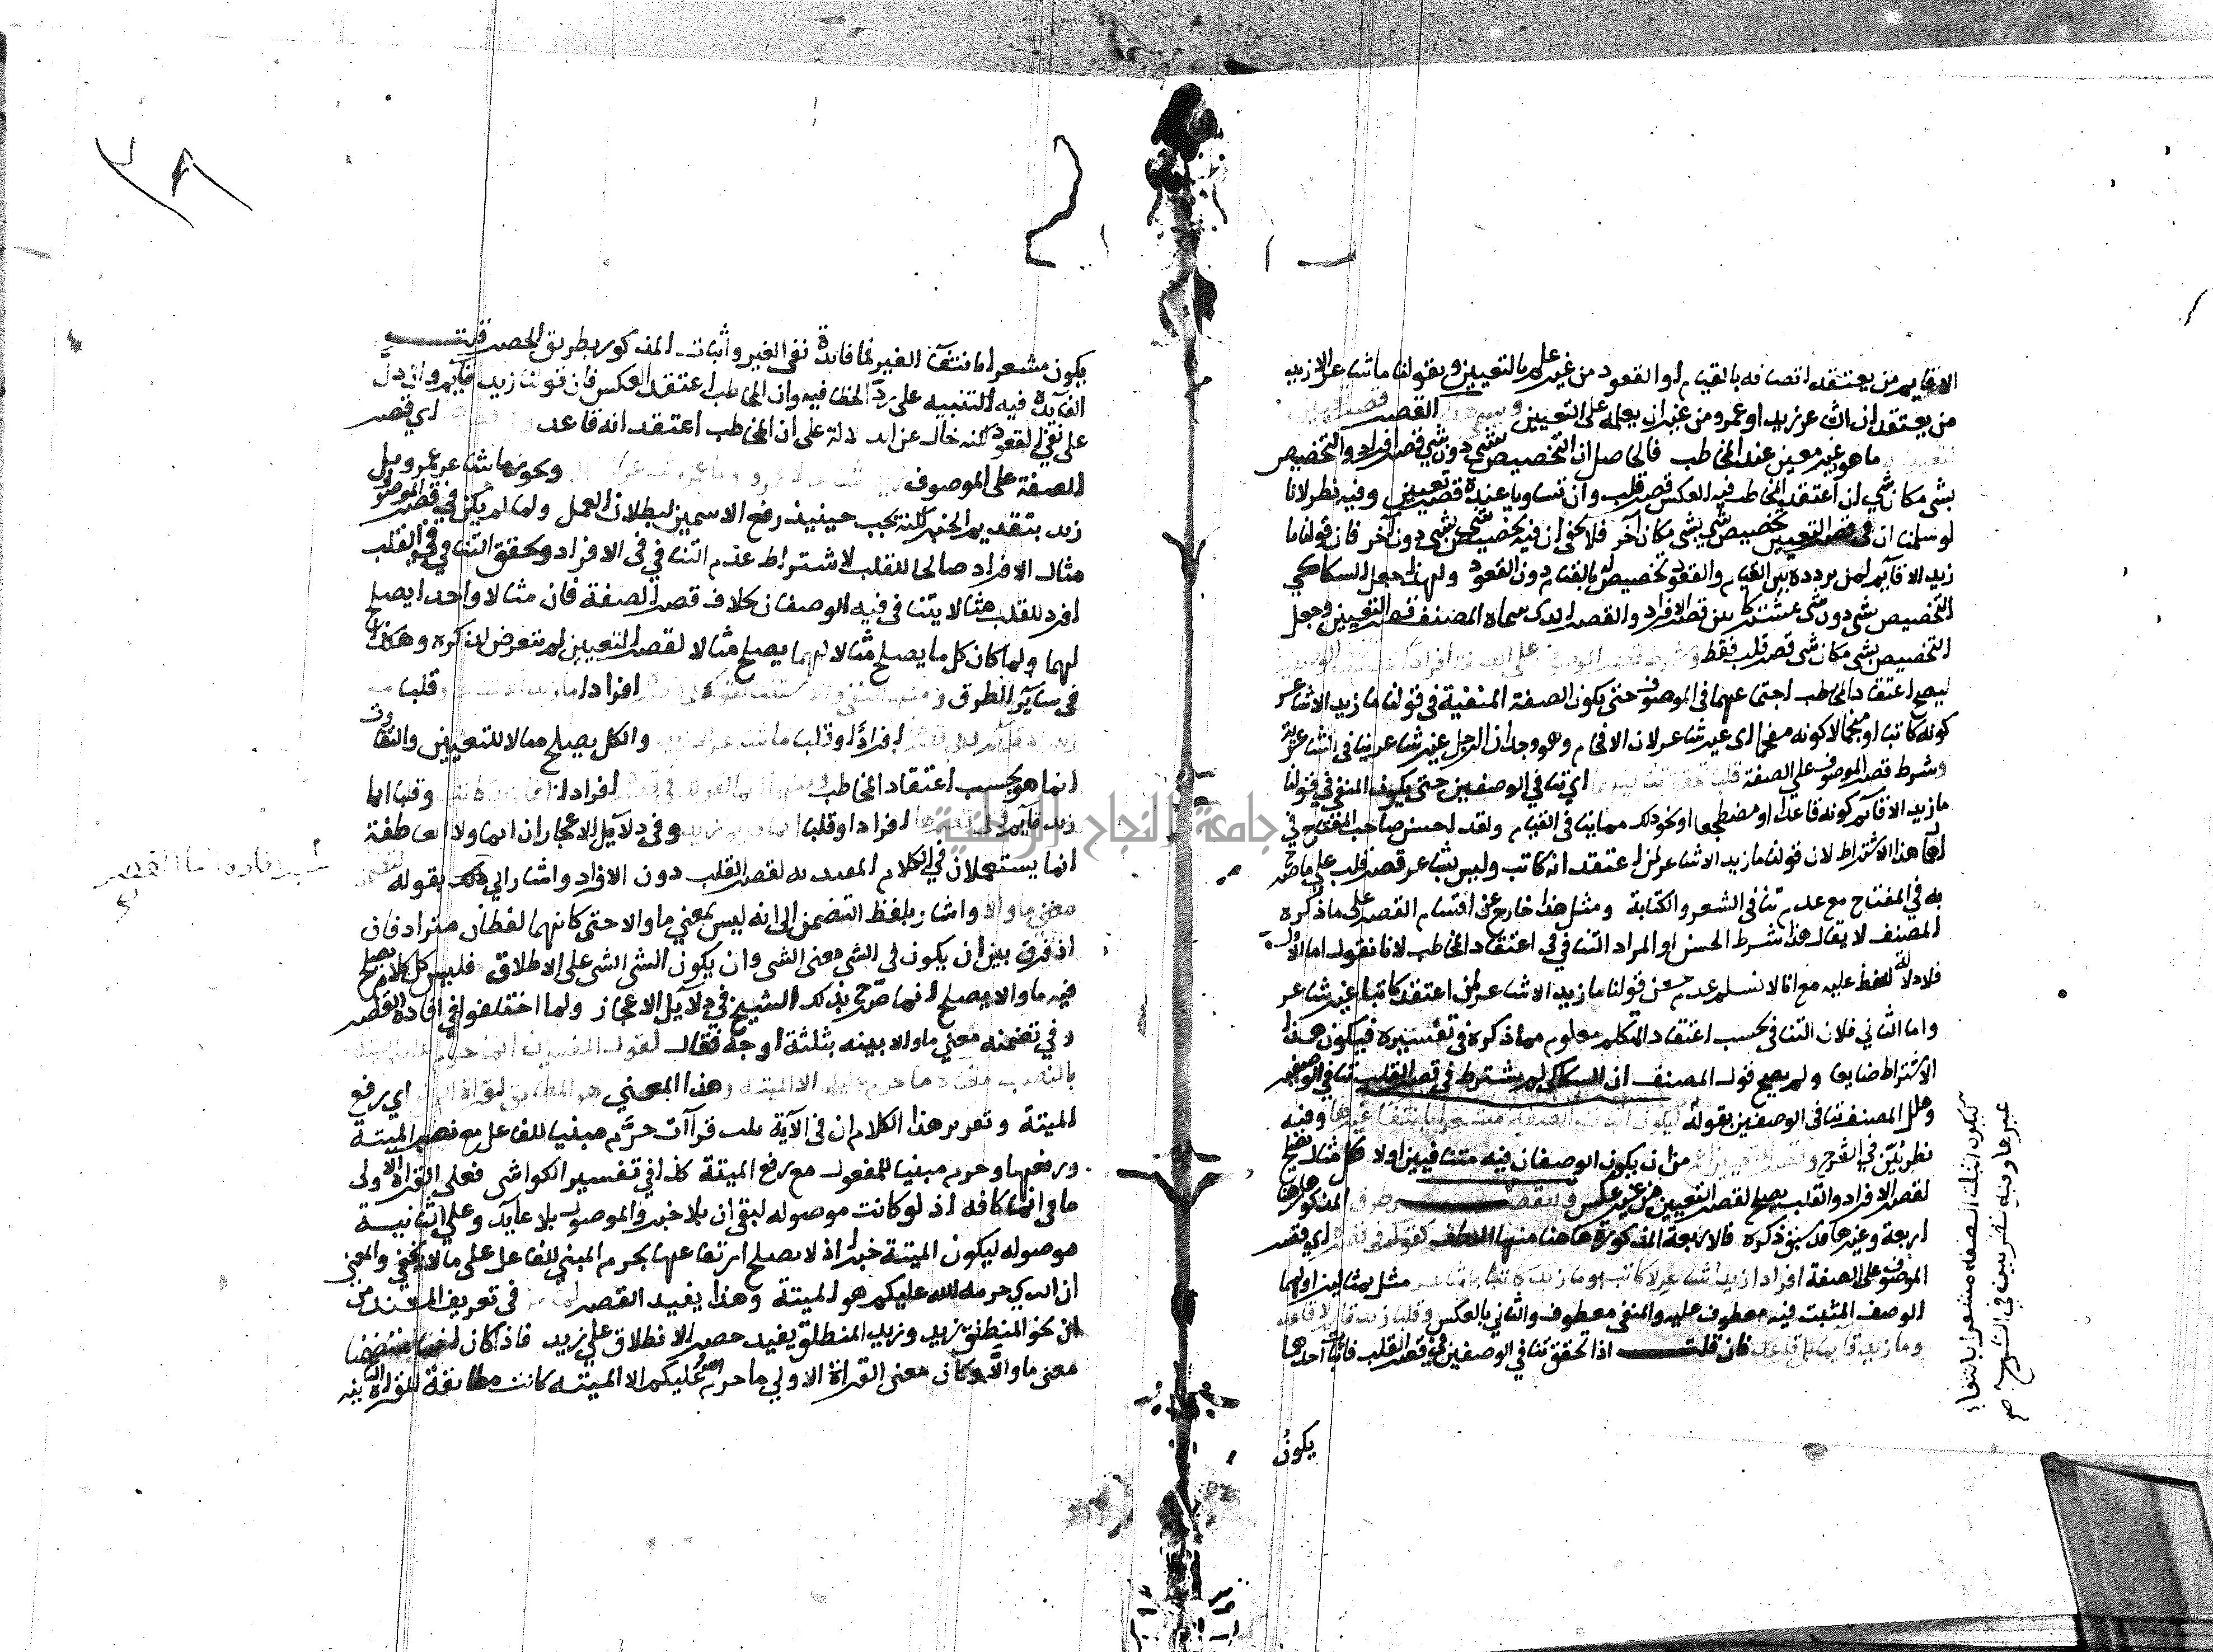 الا قايم من يعتقد اتصافه بالقيام او القعود من غير علم بالتعيين وبقولنا ما شاعر الا زيد
من يعتقد ان الشاعر زيد او عمرو من غير ان يعلمه على التعيين ويسمى القصر قصر
ما هو غير معين عند المخاطب فالحاصل ان التخصيص بشي دون شي قصر افراد والتخصيص
بشي مكان شي ان اعتقد المخاطب فيه العكس قصر قلب وان تساويا عنده قصر تعيين وفيه نظر لانا
لو سلمنا ان في قصر التعيين تخصيص شي بشي مكان آخر فلا يخفى ان فيه تخصيص شي بشي دون آخر فان قولنا ما
زيد الا قآيم لمن يردده بين القيام والقعود تخصيص له بالقيام دون القعود ولهذا جعل السكاكي
التخصيص بشي دون شي مشتركا بين قصر الافراد والقصر الذي سماه المصنف قصر التعيين وجعل
التخصيص بشي مكان شي قصر قلب فقط وشرط قصر الموصوف على الصفة افرادا
ليصح اعتقاد المخاطب اجتماعهما في الموصوف حتى يكون الصفة المنفية في قولنا ما زيد الا شاعر
كونه كاتبا او منجما لا كونه مفحما اى غير شاعر لان الافحام وهو وجدان الرجل غير شاعر ينافي الشاعرية
وشرط قصر الموصوف على الصفة قلبا تحقق تنافيهما اي تنافي الوصفين حتى يكون المنفي في قولنا
ما زيد الا قآيم كونه قاعدا او مضطجعا او نحو ذلك مما ينافي القيام ولقد احسن صاحب المفتاح في
اهمال هذا الاشتراط لان قولنا ما زيد الا شاعر لمن اعتقد انه كاتب وليس بشاعر قصر قلب على ما صرح
به في المفتاح مع عدم تنافي الشعر والكتابة ومثل هذا خارج عن اقسام القصر على ما ذكره
المصنف لا يقال هذا شرط الحسن او المراد التنافي في اعتقاد المخاطب لانا نقول اما الاول
فلا دلالة للفظ عليه مع انا لا نسلم عدم حسن قولنا ما زيد الا شاعر لمن اعتقد كاتبا غير شاعر
واما الثاني فلان التنافي بحسب اعتقاد المتكلم معلوم مما ذكره في تفسيره فيكون هذا
الاشتراط ضايعا ولم يصح قول المصنف ان السكاكي لم يشترط في قصر القلب تنافي الوصفين
وعلل المصنف تنافي الوصفين بقوله ليكون اثبات الصفة مشعرا بانتفاء غيرها وفيه
نظر بين في الشرح وقصر التعيين اعم من ان يكون الوصفان فيه متنافيين او لا فكل مثال يصلح
لقصر الافراد والقلب يصلح لقصر التعيين من غير عكس وللقصر طرق والمذكور هاهنا
اربعة وغيرها قد سبق ذكره فالاربعة المذكورة هاهنا منها العطف كقولك في قصره اي قصر
الموصوف على الصفة افرادا زيد شاعر لا كاتب وما زيد كاتبا بل شاعر مثل بمثالين اولهما
الوصف المثبت فيه معطوف عليه والمنفي معطوف والثاني بالعكس وقلبا زيد قايم لا قاعد
وما زيد قايما بل قاعد فان قلت اذا تحقق تنافي الوصفين في قصر القلب فاثبات احدهما
يكون
ليكون اثبات الصفه مشعرا بانتفاء
غيرها وفيه نظر بين في الشرح صح
٣٨
يكون مشعرا بانتفآ الغير فما فايدة نفي الغير واثبات المذكور بطريق الحصر قلت
الفآيدة فيه التنبيه على رد الخطا فيه وان المخاطب اعتقد العكس فان قولنا زيد قآيم وان دل
على نفي القعود لكنه خال عن الدلالة على ان المخاطب اعتقد انه قاعد وفي قصرها اي قصر
الصفة على الموصوف زيد شاعر لا عمرو وما عمرو شاعرا بل زيد ونحو ما شاعر عمرو بل
زيد بتقديم الخبر لكنه يجب حينيذ رفع الاسمين لبطلان العمل ولما لم يكن في قصر الموصوف
مثال الافراد صالحا للقلب لاشتراط عدم التنافي في الافراد وتحقق التنافي في القلب
افرد للقلب مثالا يتنافى فيه الوصفان بخلاف قصر الصفة فان مثالا واحدا يصلح
لهما ولما كان كل ما يصلح مثالا لهما يصلح مثالا لقصر التعيين لم نتعرض لذكره وهكذا
في سآير الطرق ومنها النفي والاستثنا كقولك في قصره افرادا ما زيد الا شاعر وقلبا ما
زيد الا قايم وفي قصرها افرادا او قلبا ما شاعر الا زيد والكل يصلح مثالا للتعيين والتفاوت
انما هو بحسب اعتقاد المخاطب ومنها انما كقولك في قصره افرادا انما زيد كاتب وقلبا انما
زيد قآيم وفي قصرها افرادا او قلبا انما قايم زيد وفي دلآيل الاعجاز ان انما ولا العاطفة
انما يستعملان في الكلام المعتد به لقصر القلب دون الافراد واشار الي ذلك بقوله لتضمنه
معنى ما والا واشار بلفظ التضمن الى انه ليس بمعني ما والا حتى كانهما لفظان مترادفان
اذ فرق بين ان يكون في الشي معنى الشي وان يكون الشي الشي على الاطلاق فليس كل كلام يصلح
فيه ما والا يصلح انما صرح بذلك الشيخ في دلآيل الاعجاز ولما اختلفوا في افادة القصر
وفي تضمنه معني ما والا بينه بثلثة اوجه فقال لقول المفسرين انما حرم عليكم الميتة
بالنصب معناه ما حرم عليكم الا الميته وهذا المعني هو المطابق لقراة الرفع اي رفع
الميتة وتقرير هذا الكلام ان في الآية ثلث قرآات حرّم مبنيا للفاعل مع نصب الميتة
ورفعها وحرم مبنيا للمفعول مع رفع الميتة كذا في تفسير الكواشي فعلي القراة الاولى
ما في انما كافه اذ لو كانت موصوله لبقي ان بلا خبر والموصول بلا عايد وعلي الثانية
موصوله ليكون الميتة خبرا اذ لا يصلح ارتفاعها بحرم المبني للفاعل على ما لا يخفي والمعني
ان الذي حرمه الله عليكم هو الميتة وهذا يفيد القصر لما مر في تعريف المسند من
ان نحو المنطلق زيد وزيد المنطلق يفيد حصر الانطلاق علي زيد فاذا كان انما متضمنا
معنى ما والا وكان معني القراة الاولي ما حرم الله عليكم الا الميته كانت مطابقة للقراة الثانيه